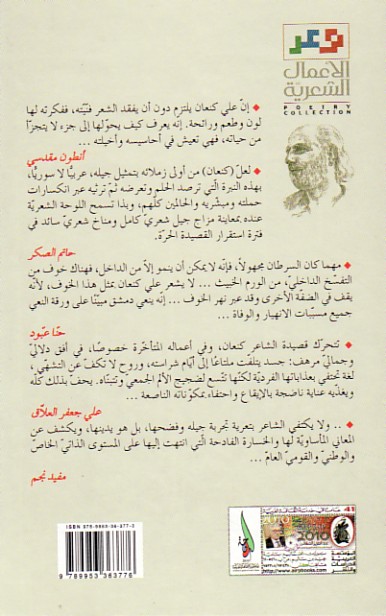 الأعمال
الشعرية
POETRY
COLLECTION
◆ إنّ علي كنعان يلتزم دون أن يفقد الشعر فنيّته، ففكرته لها
لون وطعم ورائحة. إنه يعرف كيف يحوّلها إلى جزء لا يتجزأ
من حياته، فهي تعيش في أحاسيسه وأخيلته...
أنطون مقدسي
◆ لعلّ (كنعان) من أولى زملائه بتمثيل جيله، عربيًّا لا سوريًّا،
بهذه النبرة التي ترصد الحلم وتعرضه ثم ترثيه عبر انكسارات
حملته ومبشّريه والحالمين كلّهم، وبذا تسمح اللوحة الشعريّة
عنده بمعاينة مزاج جيل شعريّ كامل ومناخ شعريّ سائد في
فترة استقرار القصيدة الحرّة.
حاتم الصكر
◆ مهما كان السرطان مجهولاً، فإنّه لا يمكن أن ينمو إلاّ من الداخل، فهناك خوف من
التفسّخ الداخليّ، من الورم الخبيث ... لا يشعر علي كنعان بمثل هذا الخوف، لأنّه
يقف في الضفة الأخرى وقد عبر نهر الخوف ... إنّه ينعي دمشق مبيّنًا على ورقة النعي
جميع مسبّبات الانهيار والوفاة ...
حنا عبود
◆ تتحرّك قصيدة الشاعر كنعان، وفي أعماله المتأخّرة خصوصًا، في أفق دلاليّ
وجماليّ مرهف: جسد يتلفّت ملتاعًا إلى أيّام شراسته، وروح لا تكفّ عن التشهّي،
لغة تحتفي بعذاباتها الفرديّة لكنّها تتّسع لضجيج الألم الجمعي وتتبنّاه. يحفّ بذلك كلّه
ويغذّيه عناية ناضجة بالإيقاع واحتفاء بمكوّناته الناصعة ...
علي جعفر العلاق
◆ .. ولا يكتفي الشاعر بتعرية تجربة جيله وفضحها، بل هو يدينها، ويكشف عن
المعاني المأساويّة لها والخسارة الفادحة الّتي انتهت إليها على المستوى الذاتيّ الخاصّ
والوطنيّ والقوميّ العامّ...
مفيد نجم
41
2010
http://www.airpbooks.com
ISBN 978-9953-36-377-6
9 789953 363776